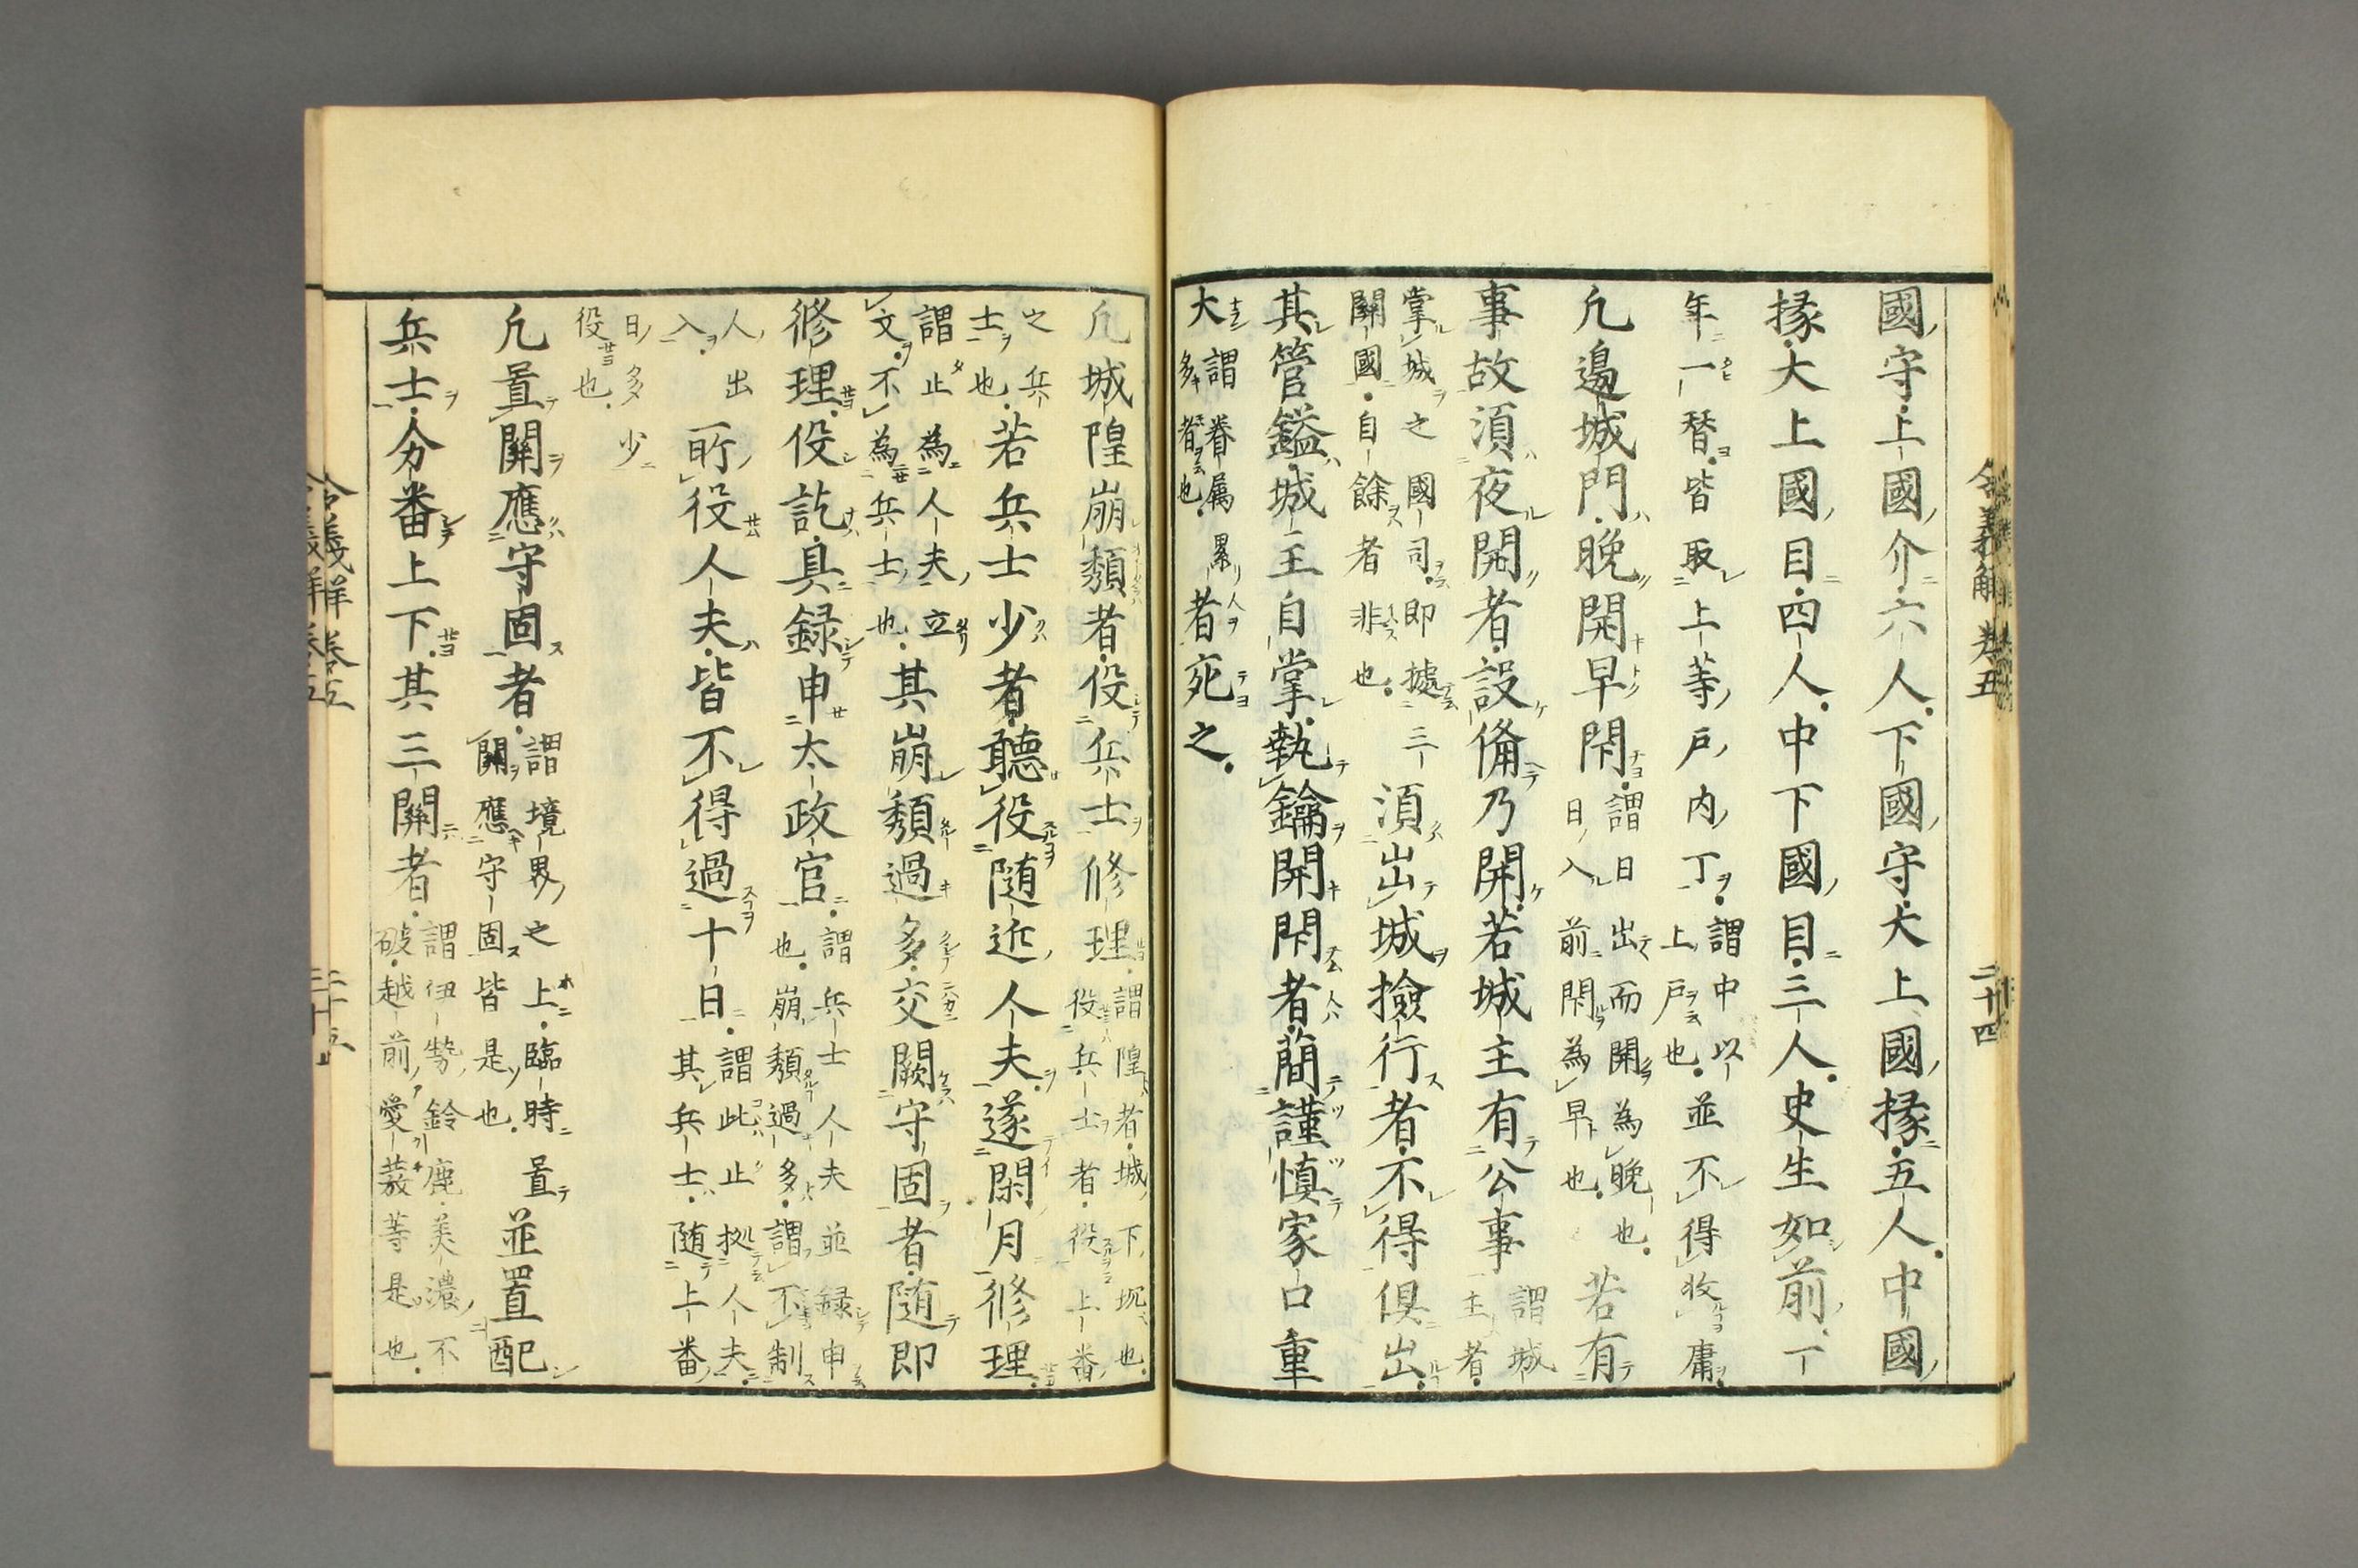 國守上國介六人下國守大上國掾五人中國
掾大上國目四人中下國目三人史生如前一
年一替皆取上等戸内丁
謂中以
上戸也
並不得收庸
凢邊城門晩開早閇
謂日出而開為晩也
日入前閇為早也
若有
事故湏夜開者設備乃開若城主有公事
謂城
主者
掌城之國司即據三
關國自餘者非也
湏出城撿行者不得俱出
其管鎰城主自掌執鑰開閇者簡謹慎家口重
大
謂眷属
多者也
累者死之
令義解 卷五
二十四
凢城隍崩頽者役兵士修理
謂隍者城下坑也
役兵士者役上番
之兵
士也
若兵士少者聽役随近人夫遂閑月修理
謂止為人夫立
文不為兵士也
其崩頽過多交闕守固者随即
修理役訖具録申太政官
謂兵士人夫並録申
也崩頽過多謂不制
人出
入
所役人夫皆不得過十日
謂此止拠人夫
其兵士随上番
日多少
役也
凢置關應守固者
謂境界之上臨時置
關應守固皆是也
並置配
兵士分番上下其三關者
謂伊勢鈴鹿美濃不
破越前愛發等是也